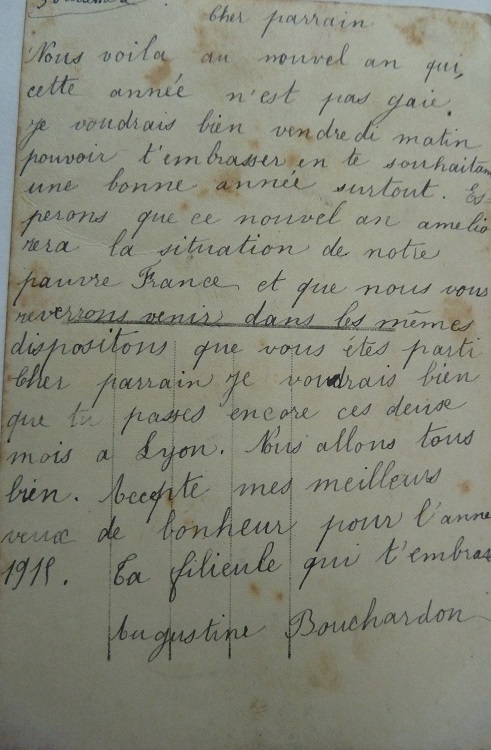 Cher parrain
Nous voila au nouvel an qui,
cette année n'est pas gaie.
Je voudrais bien vendredi matin
pouvoir t'embrasser en te souhaitan
une bonne année surtout. Es
perons que ce nouvel an amelio
rera la situation de notre
pauvre France et que nous vous
reverrons venir dans les mêmes
dispositons que vous étes parti
Cher parrain je voudrais bien
que tu passes encore ces deux
mois a Lyon. Nous allons tous
bien. Accepte mes meilleurs
veux de bonheur pour l'anne
1915. Ta filieule qui t'embras
Augustine Bouchardon